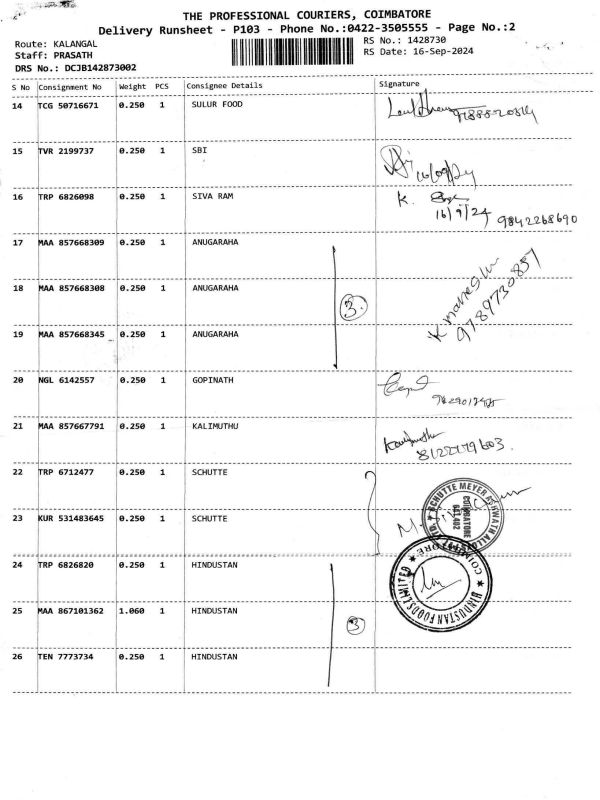 THE PROFESSIONAL COURIERS, COIMBATORE
Delivery Runsheet - P103 - Phone No.:0422-3505555 - Page No.:2
Route: KALANGAL
RS No.: 1428730
Staff: PRASATH
RS Date: 16-Sep-2024
DRS No.: DCJB142873002
S No Consignment No Weight PCS Consignee Details Signature
14 TCG 50716671 0.250 1 SULUR FOOD
15 TVR 2199737 0.250 1 SBI
16/09/24
16 TRP 6826098 0.250 1 SIVA RAM K.
16/9/24 9842268690
17 MAA 857668309 0.250 1 ANUGARAHA
18 MAA 857668308 0.250 1 ANUGARAHA
3
K. Mahesh
9789730857
19 MAA 857668345 0.250 1 ANUGARAHA
20 NGL 6142557 0.250 1 GOPINATH
21 MAA 857667791 0.250 1 KALIMUTHU
22 TRP 6712477 0.250 1 SCHUTTE
SCHUTTE MEYER ASHWATH
COIMBATORE
641 402
23 KUR 531483645 0.250 1 SCHUTTE
24 TRP 6826820 0.250 1 HINDUSTAN
HINDUSTAN FOODS LIMITED
COIMBATORE
25 MAA 867101362 1.060 1 HINDUSTAN
3
26 TEN 7773734 0.250 1 HINDUSTAN